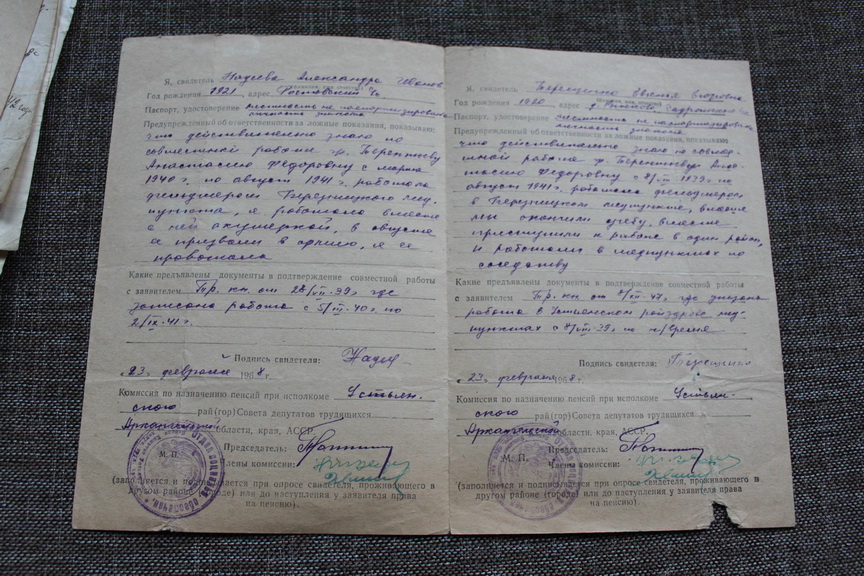 Я, свидетель Надеева Александра Иванов
Год рождения 1921, адрес Ростовский с/с
Паспорт, удостоверение местность не паспортизирована
личность знаем
Предупрежденный об ответственности за ложные показания, показываю:
что действительно знаю по
совместной работе гр.
Анастасию Федоровну с марта
1940 г. по август 1941 г. работала
фельдшером Березницкого мед-
пункта, я работала вместе
с ней акушеркой, в августе
а призвали в армию, я ее
провожала
Какие предъявлены документы в подтверждение совместной работы
с заявителем Тр. кн. от 28/VII-39 г. где
записана работа с 5/III-40 г. по
2/IX-41 г.
Подпись свидетеля: Надее
« 23 » февраля 1968 г.
Комиссия по назначению пенсий при исполкоме Устьян-
ского рай(гор)Совета депутатов трудящихся
Архангельской области, края, АССР.
М. П. Председатель:
Члены комиссии:
(заполняется и подписывается при опросе свидетеля, проживающего в
другом районе (городе) или до наступления у заявителя права
на пенсию).
Я, свидетель Егоровна
Год рождения 1920, адрес
Паспорт, удостоверение местность не паспортизирована
личность знаем
Предупрежденный об ответственности за ложные показания, показываю:
что действительно знаю по совмест-
ной работе гр. Анас-
тасию Федоровну с 1939 г. по
август 1941 г. работала фельдшером
в Березницком медпункте, вместе
мы окончили учебу, вместе
приступили к работе в один район,
и работали в медпунктах по
соседству
Какие предъявлены документы в подтверждение совместной работы
с заявителем Тр. кн. от где указана
работа в Устьянском райздраве мед-
пунктах с по н/время
Подпись свидетеля:
« 23 » февраля 1968 г.
Комиссия по назначению пенсий при исполкоме Устьян-
ского рай(гор)Совета депутатов трудящихся
Архангельской области, края, АССР.
М. П. Председатель:
Члены комиссии:
(заполняется и подписывается при опросе свидетеля, проживающего в
другом районе (городе) или до наступления у заявителя права
на пенсию).